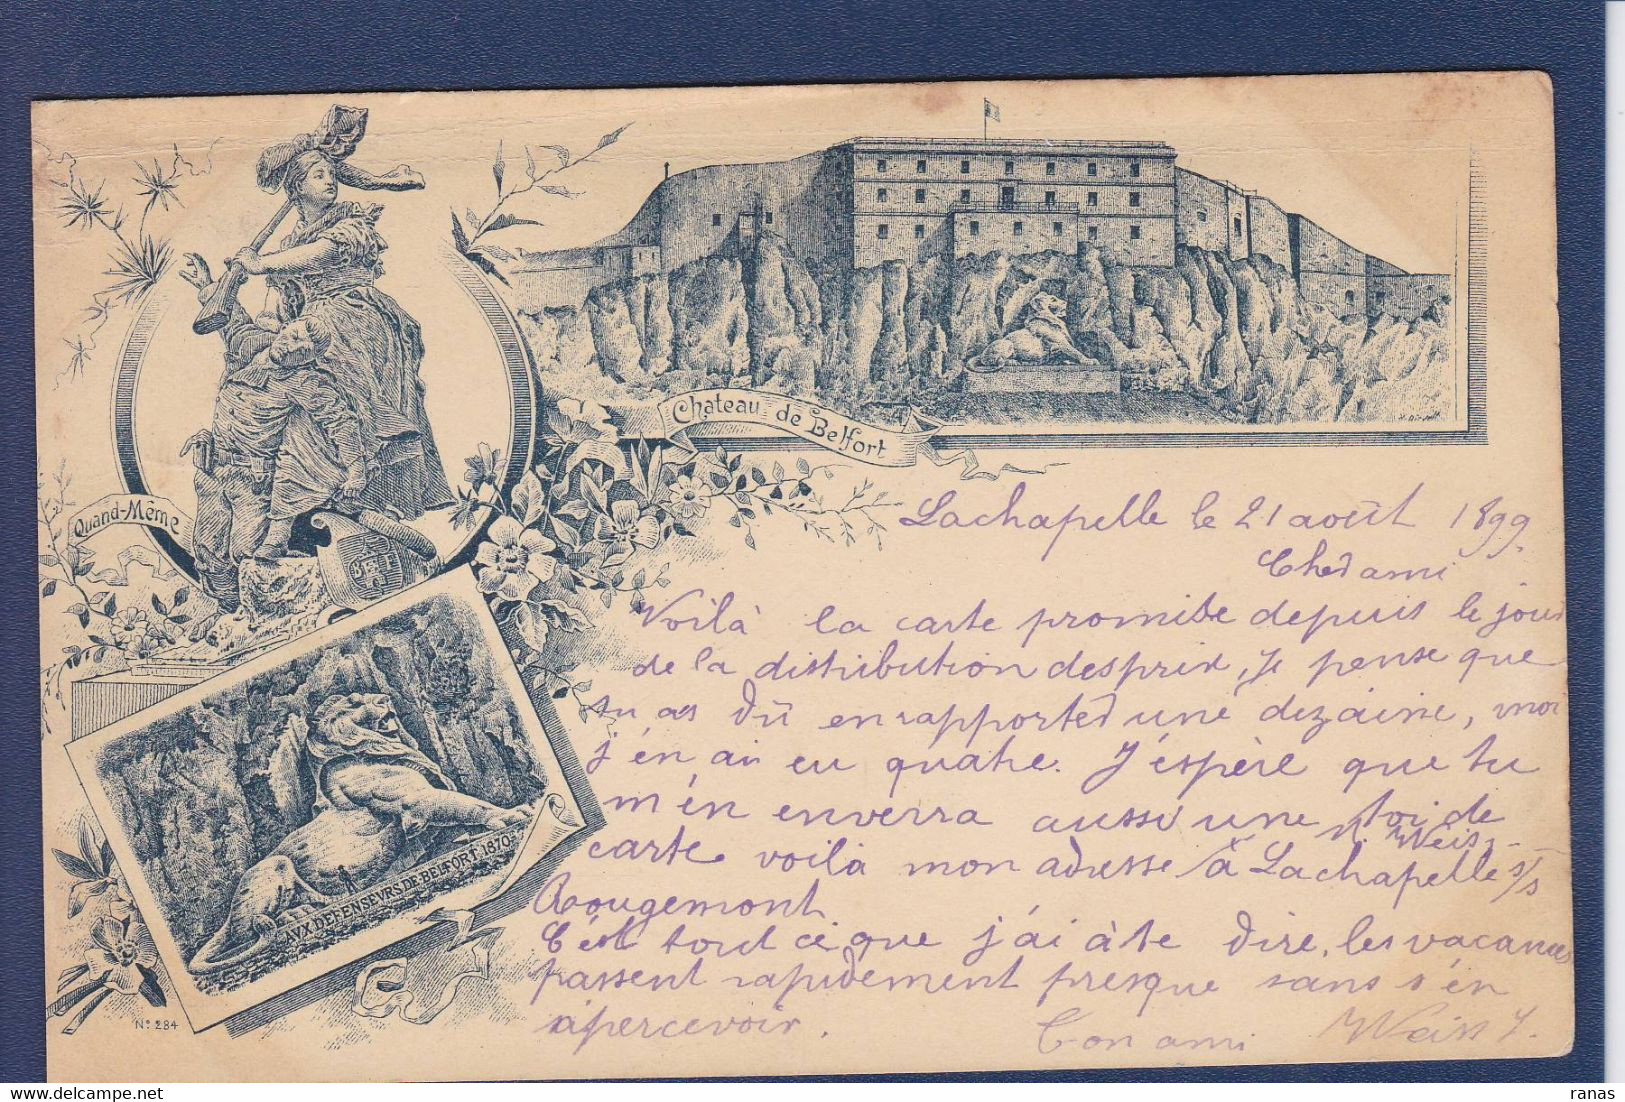 Quand-Même
Château de Belfort
AVX DEFENSEVRS DE BELFORT 1870-71
N° 284
Lachapelle le 21 août 1899.
Cher ami
Voilà la carte promise depuis le jour
de la distribution des prix, Je pense que
tu as dû en rapporter une dizaine, moi
j'en ai eu quatre. J'éspère que tu
m'en enverra aussi une toi de
carte voilà mon adresse à Lachapelle s/s
Weiss
Rougemont
C'est tout ce que j'ai à te dire, les vacances
passent rapidement presque sans s'en
apercevoir.
Ton ami Weiss J.
ranas